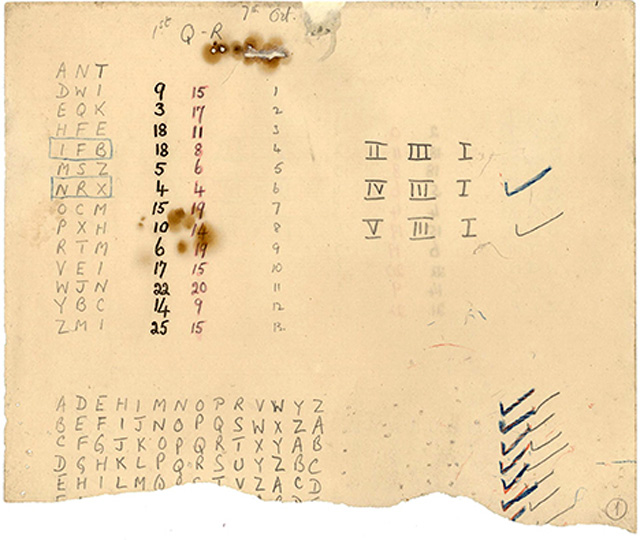 1st Q - R 7th Oct.
A N T
D W I 9 15 1
E Q K 3 17 2
H F E 18 11 3
I F B 18 8 4 II III I
M S Z 5 6 5
N R X 4 4 6 IV III I
O C M 15 19 7
P X H 10 14 8 V III I
R T M 6 19 9
V E I 17 15 10
W J N 22 20 11
Y B C 14 9 12
Z M I 25 15 13
A D E H I M N O P R V W Y Z
B E F I J N O P Q S W X Z A
C F G J K O P Q R T X Y A B
D G H K L P Q R S U Y Z B C
E H I L M Q T V Z A C D
1